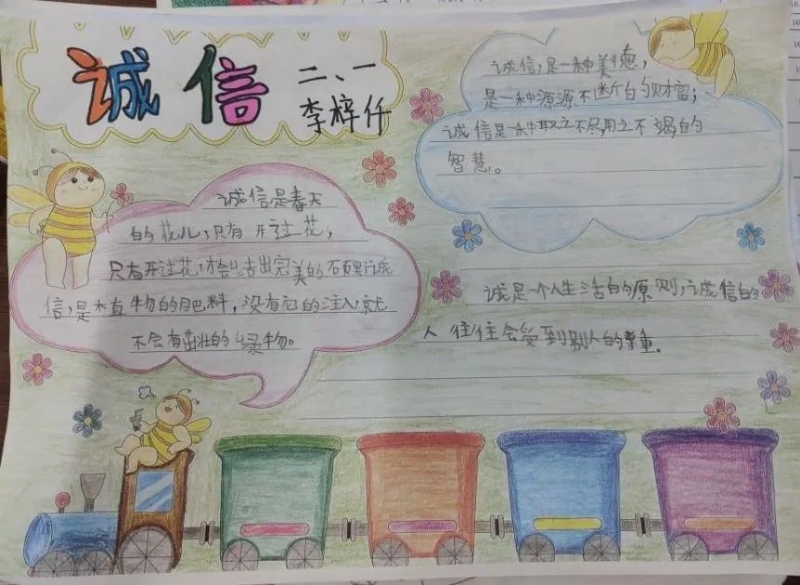 诚信
二、一
李梓仟
诚信是春天
的花儿,只有开过花,
只有开过花,才会结出完美的石果,诚
信,是植物的肥料,没有它的注入,就
不会有茁壮的绿物。
诚信,是一种美德,
是一种源源不断的财富;
诚信是一种取之不尽用之不竭的
智慧。
诚是一个人生活的原则,诚信的
人往往会受到别人的尊重。